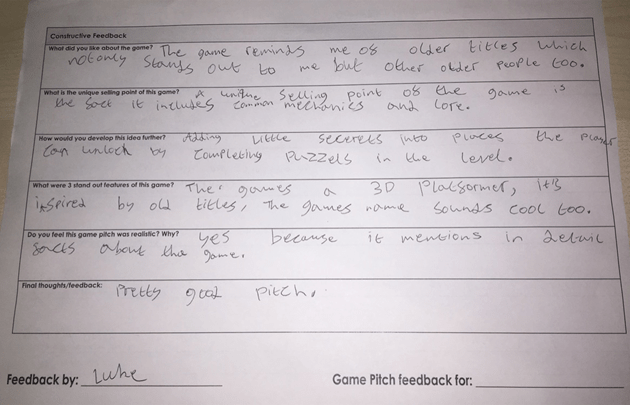 Constructive Feedback
What did you like about the game? The game reminds me of older titles which
not only stands out to me but other older people too.
What is the unique selling point of this game? A unique selling point of the game is
the fact it includes common mechanics and lore.
How would you develop this idea further? Adding little secerets into places the player
can unlock by completing puzzels in the level.
What were 3 stand out features of this game? The games a 3D platformer, it's
inspired by old titles, the games name sounds cool too.
Do you feel this game pitch was realistic? Why? yes because it mentions in detail
facts about the game.
Final thoughts/feedback: Pretty good pitch.
Feedback by: Luke Game Pitch feedback for: